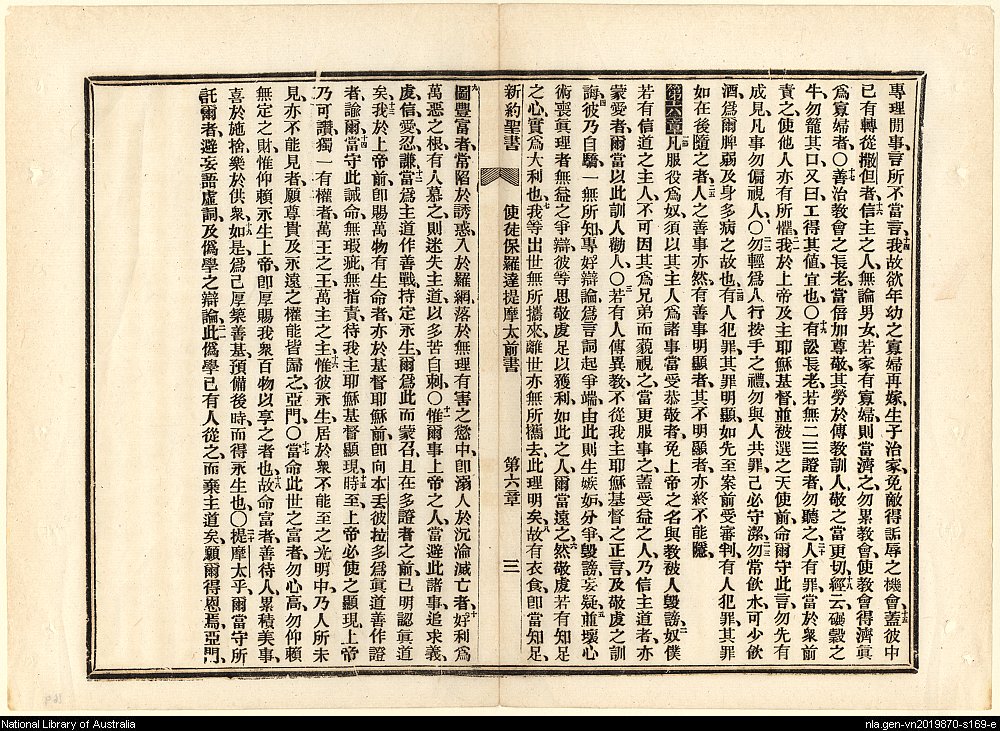 專理閒事、言所不當言、我故欲年幼之寡婦再嫁、生子治家、免敵得詬辱之機會、蓋彼中
已有轉從撒但者、信主之人、無論男女、若家有寡婦、則當濟之、勿累教會、使教會得濟眞
爲寡婦者、〇善治教會之長老、當倍加尊敬、其勞於傳教訓人、敬之當更切、經云、碾穀之
牛、勿籠其口、又曰、工得其値、宜也、〇有訟長老、若無二三證者、勿聽之、人有罪、當於衆前
責之、使他人亦有所懼、我於上帝及主耶穌基督、並被選之天使前、命爾守此言、勿先有
成見、凡事勿偏視人、〇勿輕爲人行按手之禮、勿與人共罪、己必守潔、勿常飲水、可少飲
酒、爲爾脾弱、及身多病之故也、有人犯罪、其罪明顯、如先至案前受審判、有人犯罪、其罪
如在後隨之者、人之善事亦然、有善事明顯者、其不明顯者、亦終不能隱、
第六章 凡服役爲奴、須以其主人爲諸事當受恭敬者、免上帝之名與教、被人毀謗、奴僕
若有信道之主人、不可因其爲兄弟而藐視之、當更服事之、蓋受益之人、乃信主道者、亦
蒙愛者、爾當以此訓人勸人、〇若有人傳異教、不從我主耶穌基督之正言、及敬虔之訓
誨、彼乃自驕、一無所知、專好辯論、爲言詞起爭端、由此則生嫉妒、分爭、毀謗、妄疑、並壞心
術、喪眞理者、無益之爭辯、彼等思敬虔足以獲利、如此之人、爾當遠之、然敬虔若有知足
之心、實爲大利也、我等出世、無所攜來、離世亦無所攜去、此理明矣、故有衣食、卽當知足、
新約聖書 使徒保羅達提摩太前書 第六章 三
圖豐富者、當陷於誘惑、入於羅網、落於無理有害之慾中、卽溺人於沉淪滅亡者、好利爲
萬惡之根、有人慕之、則迷失主道、以多苦自刺、〇惟爾事上帝之人、當避此諸事、追求義、
虔、信、愛、忍、謙、當爲主道作善戰、持定永生、爾爲此而蒙召、且在多證者之前、已明認眞道
矣、我於上帝前、卽賜萬物有生命者、亦於基督耶穌前、卽向本丟彼拉多爲眞道善作證
者、諭爾、當守此誡命、無瑕疵、無指責、待我主耶穌基督顯現、時至上帝必使之顯現、上帝
乃可讚獨一有權者、萬王之王、萬主之主、惟彼永生、居於衆不能至之光明中、乃人所未
見、亦不能見者、願尊貴及永遠之權能、皆歸之、亞門、〇當命此世之富者、勿心高、勿仰賴
無定之財、惟仰賴永生上帝、卽厚賜我衆百物以享之者也、故命富者善待人、累積美事、
喜於施捨、樂於供衆、如是爲己厚築善基、預備後時、而得永生也、〇提摩太乎、爾當守所
託爾者、避妄語虛詞、及僞學之辯論、此僞學已有人從之、而棄主道矣、願爾得恩焉、亞門、
National Library of Australia
nla.gen-vn2019870-s169-e